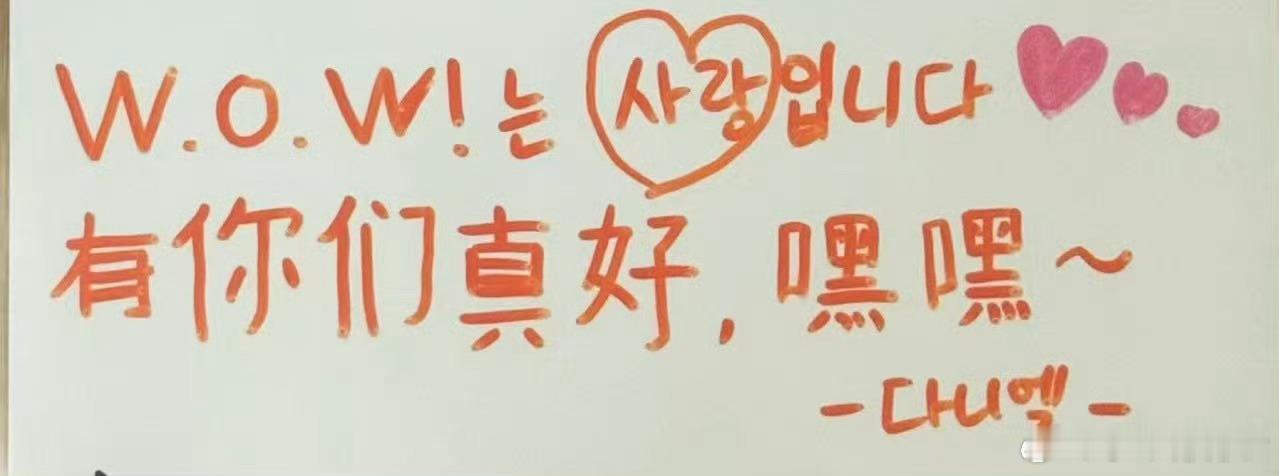 W.O.W!는 사랑입니다
有你们真好,嘿嘿~
-다니엑-